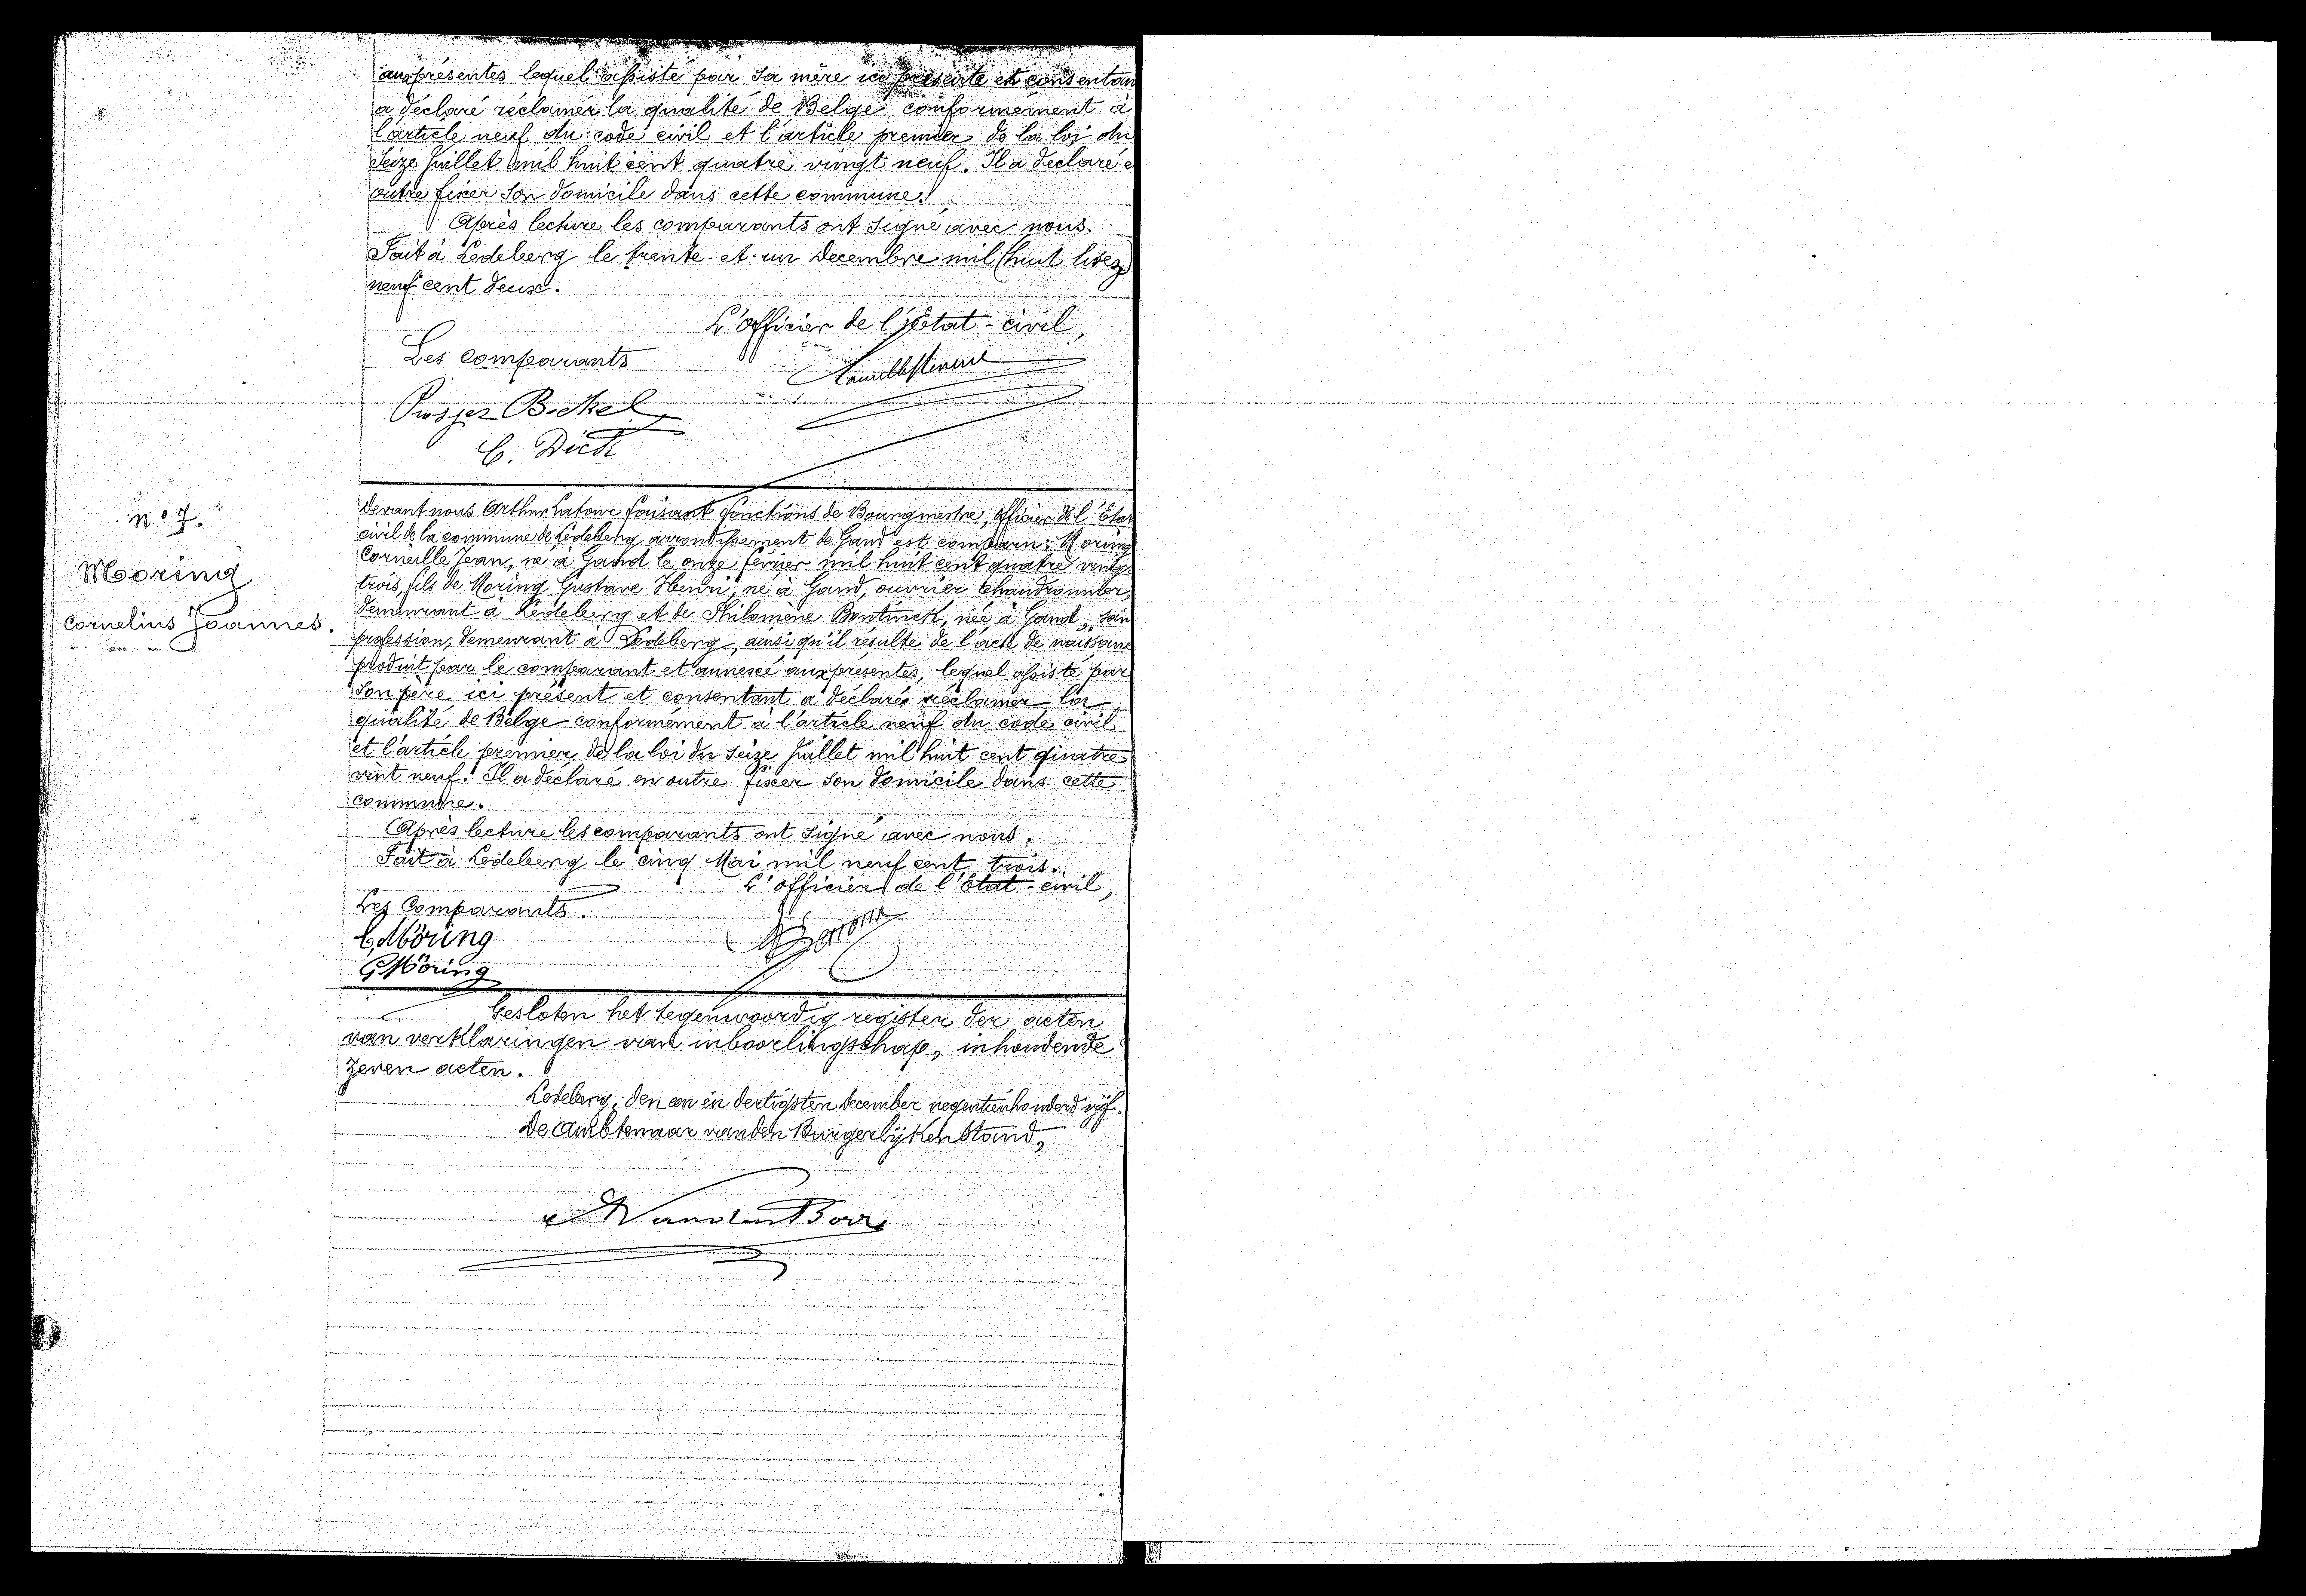 aux présentes lequel assisté par sa mère ici présente et consentan
a déclaré réclamér la qualité de Belge conformément à
l'article neuf du code civil et l'article premier de la loi du
Seize Juillet mil huit cent quatre vingt neuf. Il a déclaré e
outre fixer son domicile dans cette commune.
Après lecture les comparants ont signé avec nous.
Fait à Ledeberg le trente et un Decembre mil (huit lisez)
neuf cent deux.
L'officier de l'Etat-civil,
Les comparants
Prosper Bickel
C. Dick
n° 7.
Moring
Cornelius Joannes.
Devant nous Arthur Latour faisant fonctions de Bourgmestre, officier de l'Etat
civil de la commune de Ledeberg arrondissement de Gand est comparu: Moring
Corneille Jean, né à Gand le onze février mil huit cent quatre vingt
trois, fils de Moring Gustave Henri, né à Gand, ouvrier chaudronnier,
demeurant à Ledeberg et de Philomène Bontinck, née à Gand, san
profession, demeurant à Ledeberg, ainsi qu'il résulte de l'acte de naissance
produit par le comparant et annexé aux présentes, lequel assisté par
son père ici présent et consentant a déclaré réclamer la
qualité de Belge conformément à l'article neuf du code civil
et l'article premier de la loi du seize Juillet mil huit cent quatre
vint neuf. Il a déclaré en outre fixer son domicile dans cette
commune.
Après lecture les comparants ont signé avec nous.
Fait à Ledeberg le cinq Mai mil neuf cent trois.
L'officier de l'Etat-civil,
Les Comparants.
C. Möring
G. Möring
Gesloten het tegenwoordig register der acten
van verklaringen van inboorlingschap, inhoudende
zeven acten.
Ledeberg, den een en dertigsten december negentienhonderd vijf.
De Ambtenaar van den Burgerlijken Stand,